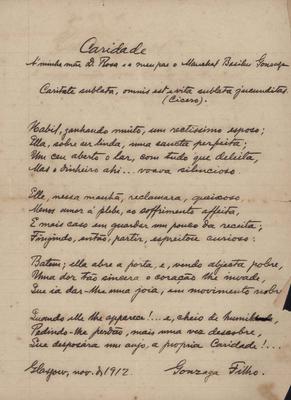 Caridade
A minha mãe D. Rosa e a meu pae o Marechal Basileu Gonzaga
Caritate sublata, omnis est e vita sublata jucunditas
(Cicero).
Habil, ganhando muito, um rectissimo esposo;
Ella, sobre ser linda, uma sancta perfeita;
Um ceu aberto o lar, com tudo que deleita,
Mas o dinheiro ahi... voava silencioso.
Elle, nessa manhã, reclamara, queixoso,
Menos amor á plebe, ao soffrimento affeita,
E mais caso em guardar um pouco da receita;
Fingindo, então, partir, espreitou curioso:
Batem; ella abre a porta, e, vendo abjecta pobre,
Uma dor tão sincera o coração lhe invade,
Que ia dar-lhe uma joia, em movimento nobre
Quando elle lhe apparece!... e, cheio de
Pedindo-lhe perdão, mais uma vez descobre,
Que desposára um anjo, a propria Caridade!...
Glasgow, nov. de 1912. Gonzaga Filho.